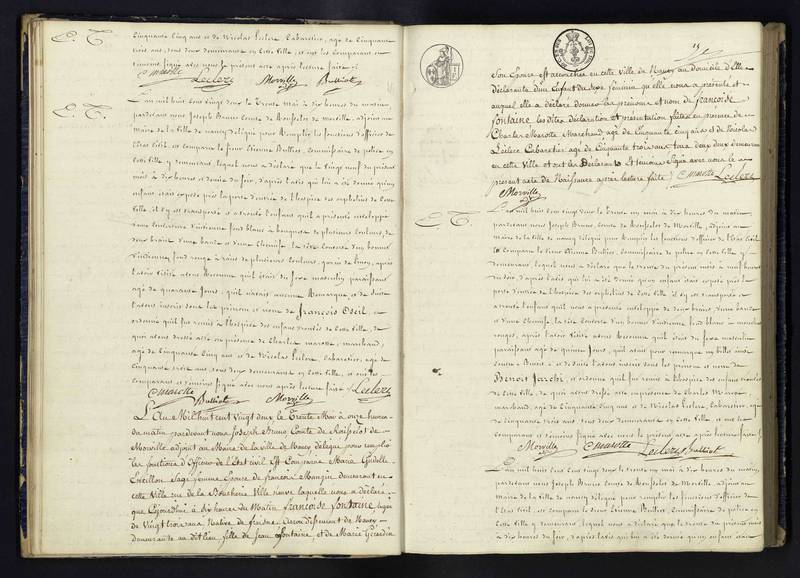 E. T.
Cinquante cinq ans et de Nicolas Leclerc, Cabaretier, agé de Cinquante
trois ans, tous deux demeurant en cette Ville, et ont les Comparant et
temoins signé avec nous le présent acte après lecture faite
Cmarotte Leclerc Morville Bulliot
E. T.
L'an mil huit cent vingt deux le trente Mai à dix heures du matin
pardevant nous Joseph Bruno Comte de de Morville, adjoint au
maire de la Ville de nancy délégué pour Remplir les fonctions d'officier de
l'Etat Civil, est Comparu le sieur Etienne Bulliot, Commissaire de police en
cette Ville y demeurant, lequel nous a déclaré que le vingt neuf du présent
mois à dix heures et demie du soir, d'après l'avis qui lui a été donné qu'un
enfant était exposé près la porte d'entrée de l'hospice des orphelins de cette
Ville, il s'y est transporté et a trouvé l'enfant qu'il a présenté enveloppé
d'une d'indienne fond blanc à bouquets de plusieurs Couleurs, de
deux braies, d'une bande et d'une Chemise. La tête Couverte d'un bonnet
d'indienne fond rouge à raies de plusieurs Couleurs, garni de après
l'avoir visité avons Reconnu qu'il était du sexe masculin paraissant
agé de quarante Jours, qu'il n'avait aucune Remarque, et de suite
l'avons inscrit sous les prénom et nom de françois Oseil, et
ordonné qu'il fut remis à l'hospice des enfans trouvés de Cette Ville, de
quoi avons dressé acte en présence de Charles marotte, marchand,
agé de Cinquante Cinq ans et de Nicolas Leclerc, Cabaretier, agé de
Cinquante trois ans, tous deux demeurant en cette Ville, et ont les
Comparant et témoins signé avec nous après lecture faite Leclerc
Cmarotte Bulliot Morville
L'An Mil huit cent Vingt deux le Trente Mai à onze heures
du matin pardevant nous Joseph Bruno Comte de de
Morville adjoint au Maire de la Ville de Nancy délégué pour remplir
les fonctions d'officier de l'Etat Civil Est Comparue Marie
Sage femme Epouse de françois Mangin demeurant en
cette Ville rue de la Boucherie Ville neuve laquelle nous a déclaré
que Cejourd'hui à Six heures du Matin françoise fontaine, agée
de Vingt trois ans Native de arrondissement de Nancy
demeurante au dit lieu fille de Jean fontaine et de Marie Girardin
15
Son Epouse est accouchée en cette Ville de Nancy au Domicile d'elle
déclarante d'un Enfant du Sexe féminin qu'elle nous a présenté et
auquel elle a déclaré donner les prénoms et nom de françoise
fontaine les dites déclaration et présentation faites en présence de
Charles Marotte Marchand agé de Cinquante Cinq ans et de Nicolas
Leclerc Cabaretier agé de Cinquante trois ans tous deux demeurant
en cette Ville et ont les Déclarante et témoins signé avec nous le
présent acte de Naissance après lecture faite Cmarotte Leclerc
Morville
E. T.
L'an mil huit cent vingt deux le trente un mai à dix heures du matin
pardevant nous Joseph Bruno, Comte de de Morville, adjoint au
maire de la Ville de nancy délégué pour Remplir les fonctions d'officier de l'Etat Civil
est Comparu le sieur Etienne Bulliot, Commissaire de police en cette Ville y
demeurant, lequel nous a déclaré que le trente du présent mois à neuf heures
du soir d'après l'avis qui lui a été donné qu'un enfant était exposé près la
porte d'entrée de l'hospice des orphelins de cette Ville, il s'y est transporté et
a trouvé l'enfant qu'il nous a présenté enveloppé de deux braies, d'une bande
et d'une Chemise, la tête Couverte d'un bonnet d'indienne fond blanc à
rouges, après l'avoir visité avons Reconnu qu'il était du sexe masculin
paraissant agé de quinze Jours, qu'il avait pour remarque un billet ainsi
Conçu: Benoit et de suite l'avons inscrit sous les prénom et nom de
Benoit Jarchi, et ordonné qu'il fut remis à l'hospice des enfans trouvés
de cette Ville, de quoi avons dressé acte en présence de Charles Marotte,
marchand, agé de Cinquante Cinq ans et de Nicolas Leclerc, Cabaretier, agé
de Cinquante trois ans, tous deux demeurant en cette Ville, et ont les
Comparant et témoins signé avec nous le présent acte après lecture faite
Morville Cmarotte Leclerc Bulliot
L'an mil huit cent vingt deux le trente un mai à dix heures du matin,
pardevant nous Joseph Bruno Comte de de Morville, adjoint au
maire de la Ville de nancy délégué pour remplir les fonctions d'officier de
l'Etat Civil, est Comparu le sieur Etienne Bulliot, Commissaire de police en
cette Ville y demeurant, lequel nous a déclaré que le trente du présent mois
à dix heures du soir, d'après l'avis qui lui a été donné qu'un enfant était